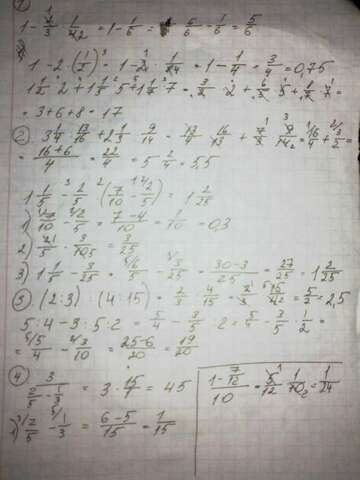 ①
1 - 1/3 · 1/2 = 1 - 1/6 = 6/6 - 1/6 = 5/6
1 - 2 · (1/2)³ = 1 - 2 · 1/8 = 1 - 1/4 = 3/4 = 0,75
1 1/2 · 2 + 1 1/5 · 5 + 1 1/7 · 7 = 3/2 · 2 + 6/5 · 5 + 8/7 · 7 =
= 3 + 6 + 8 = 17
② 3 1/4 · 16/13 + 2 1/3 · 9/14 = 13/4 · 16/13 + 7/3 · 9/14 = 16/4 + 3/2 =
= 16+6/4 = 22/4 = 5 2/4 = 5,5
1 1/5 - 2/5 · (7/10 - 2/5) = 1 2/25
1) 7/10 - 2/5 = 7-4/10 = 3/10 = 0,3
2) 2/5 · 3/10 = 3/25
3) 1 1/5 - 3/25 = 6/5 - 3/25 = 30-3/25 = 27/25 = 1 2/25
③ (2:3) : (4:15) = 2/3 : 4/15 = 2/3 · 15/4 = 5/2 = 2,5
5:4 - 3:5:2 = 5/4 - 3/5 : 2 = 5/4 - 3/5 · 1/2 =
= 5/4 - 3/10 = 25-6/20 = 19/20
④ 3 / 2/5 - 1/3 = 3 · 15/1 = 45
1) 2/5 - 1/3 = 6-5/15 = 1/15
1 - 7/12 / 10 = 5/12 · 1/10 = 1/24